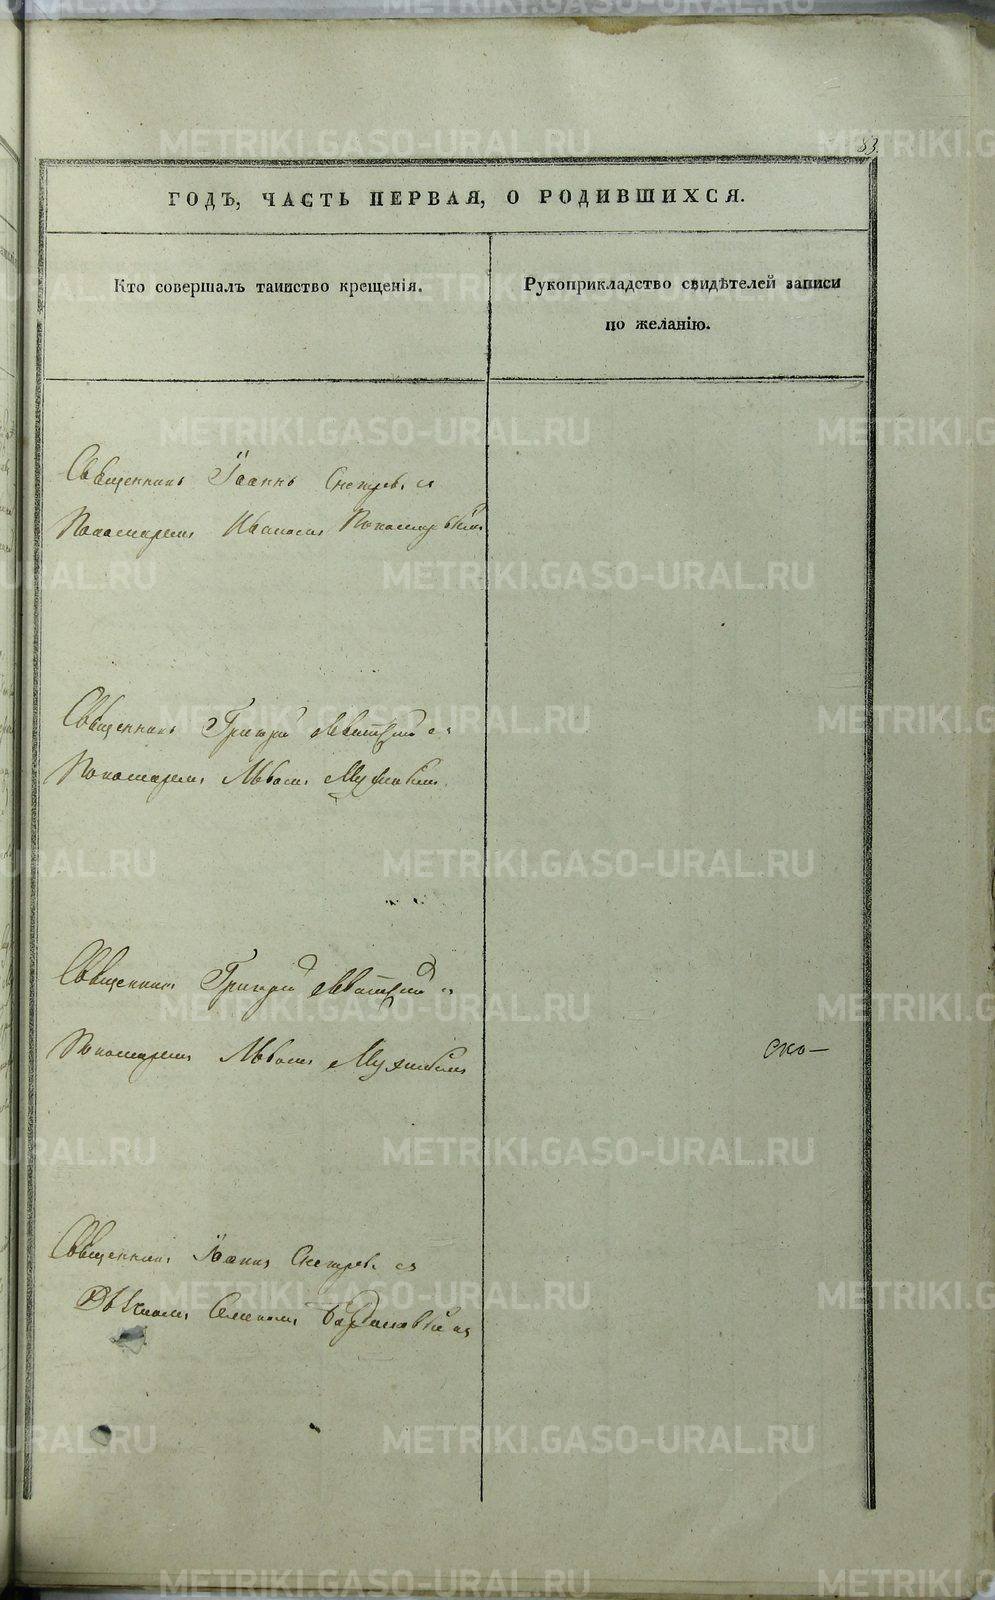 83
ГОДЪ, ЧАСТЬ ПЕРВАЯ, О РОДИВШИХСЯ.
Кто совершалъ таинство крещенія.
Рукоприкладство свидѣтелей записи
по желанію.
Священникъ Іоаннъ съ
Пономаремъ Иваномъ Пономаревымъ
Священникъ Григорій съ
Пономаремъ Львомъ
Священникъ Григорій съ
Пономаремъ Львомъ
ско-
Священникъ Іоаннъ съ
Дьякономъ Семеномъ
METRIKI.GASO-URAL.RU